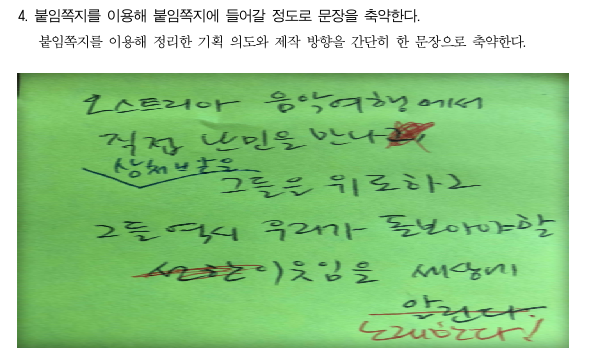 4. 붙임쪽지를 이용해 붙임쪽지에 들어갈 정도로 문장을 축약한다.
붙임쪽지를 이용해 정리한 기획 의도와 제작 방향을 간단히 한 문장으로 축약한다.
오스트리아 음악여행에서
직접 난민을 만나고,
상처받은
그들을 위로하고
그들 역시 우리가 돌보아야할
이웃임을 세상에
알린다.
노래한다!